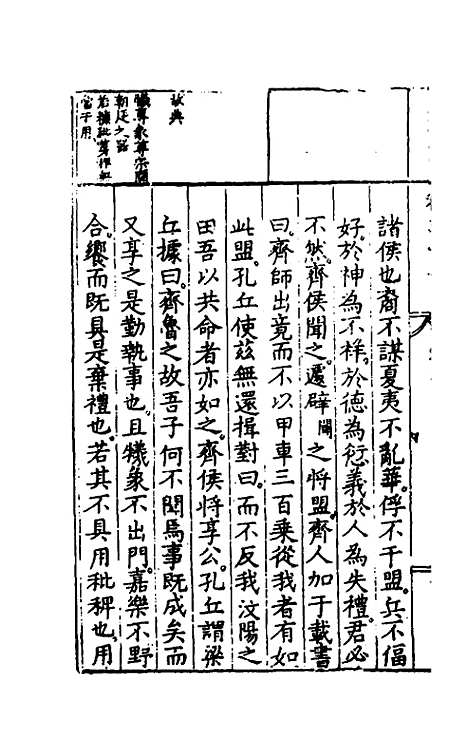 故典
諸侯也裔不謀夏夷不亂華。俘不干盟。兵不偪
好。於神為不祥。於德為愆義於人為失禮。君必
不然。齊侯聞之。遽辟闢之將盟。齊人加于載書
曰。齊師出竟而不以甲車三百乘從我者有如
此盟。孔丘使茲無還揖對曰。而不反我汶陽之
田吾以共命者亦如之。齊侯將享公。孔丘謂梁
丘據曰。齊魯之故吾子何不聞焉事既成矣而
又享之是勤執事也。且犧象不出門。嘉樂不野
合。饗而既具是棄禮也。若其不具用秕稗也。用